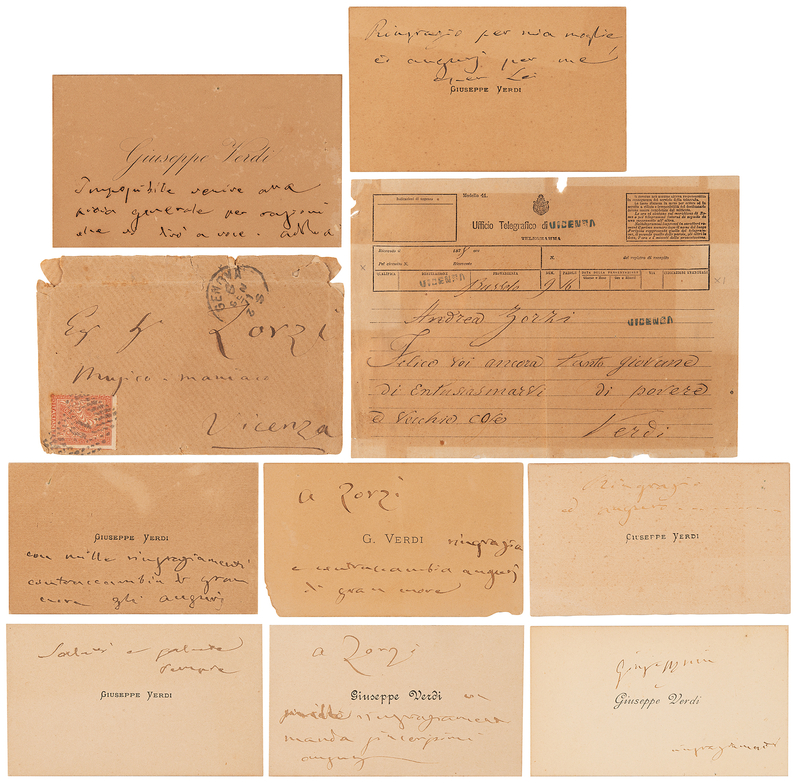 Ringrazio per mia moglie
ed augurj per me
e per Lei
GIUSEPPE VERDI
Giuseppe Verdi
Impossibile venire alla
prova generale per ragioni
che vi dirò a voce. Addio
Modello 41.
Ufficio Telegrafico di VICENZA
TELEGRAMMA
VICENZA
Busseto 9 16
Andrea Zorzi
VICENZA
Felice voi ancora tanto giovane
di entusiasmarvi di povere
e vecchie cose
Verdi
GENOVA
Zorzi
Musico-maniaco
Vicenza
GIUSEPPE VERDI
con mille ringraziamenti
contraccambia di gran
cuore gli augurj
a Zorzi
G. VERDI ringrazia
e contraccambia augurj
di gran cuore
Ringrazio
ed auguro
GIUSEPPE VERDI
Saluti e
sempre
GIUSEPPE VERDI
a Zorzi
Giuseppe Verdi
ringraziamenti
manda
augurj
Giuseppina
e
Giuseppe Verdi
ringraziando